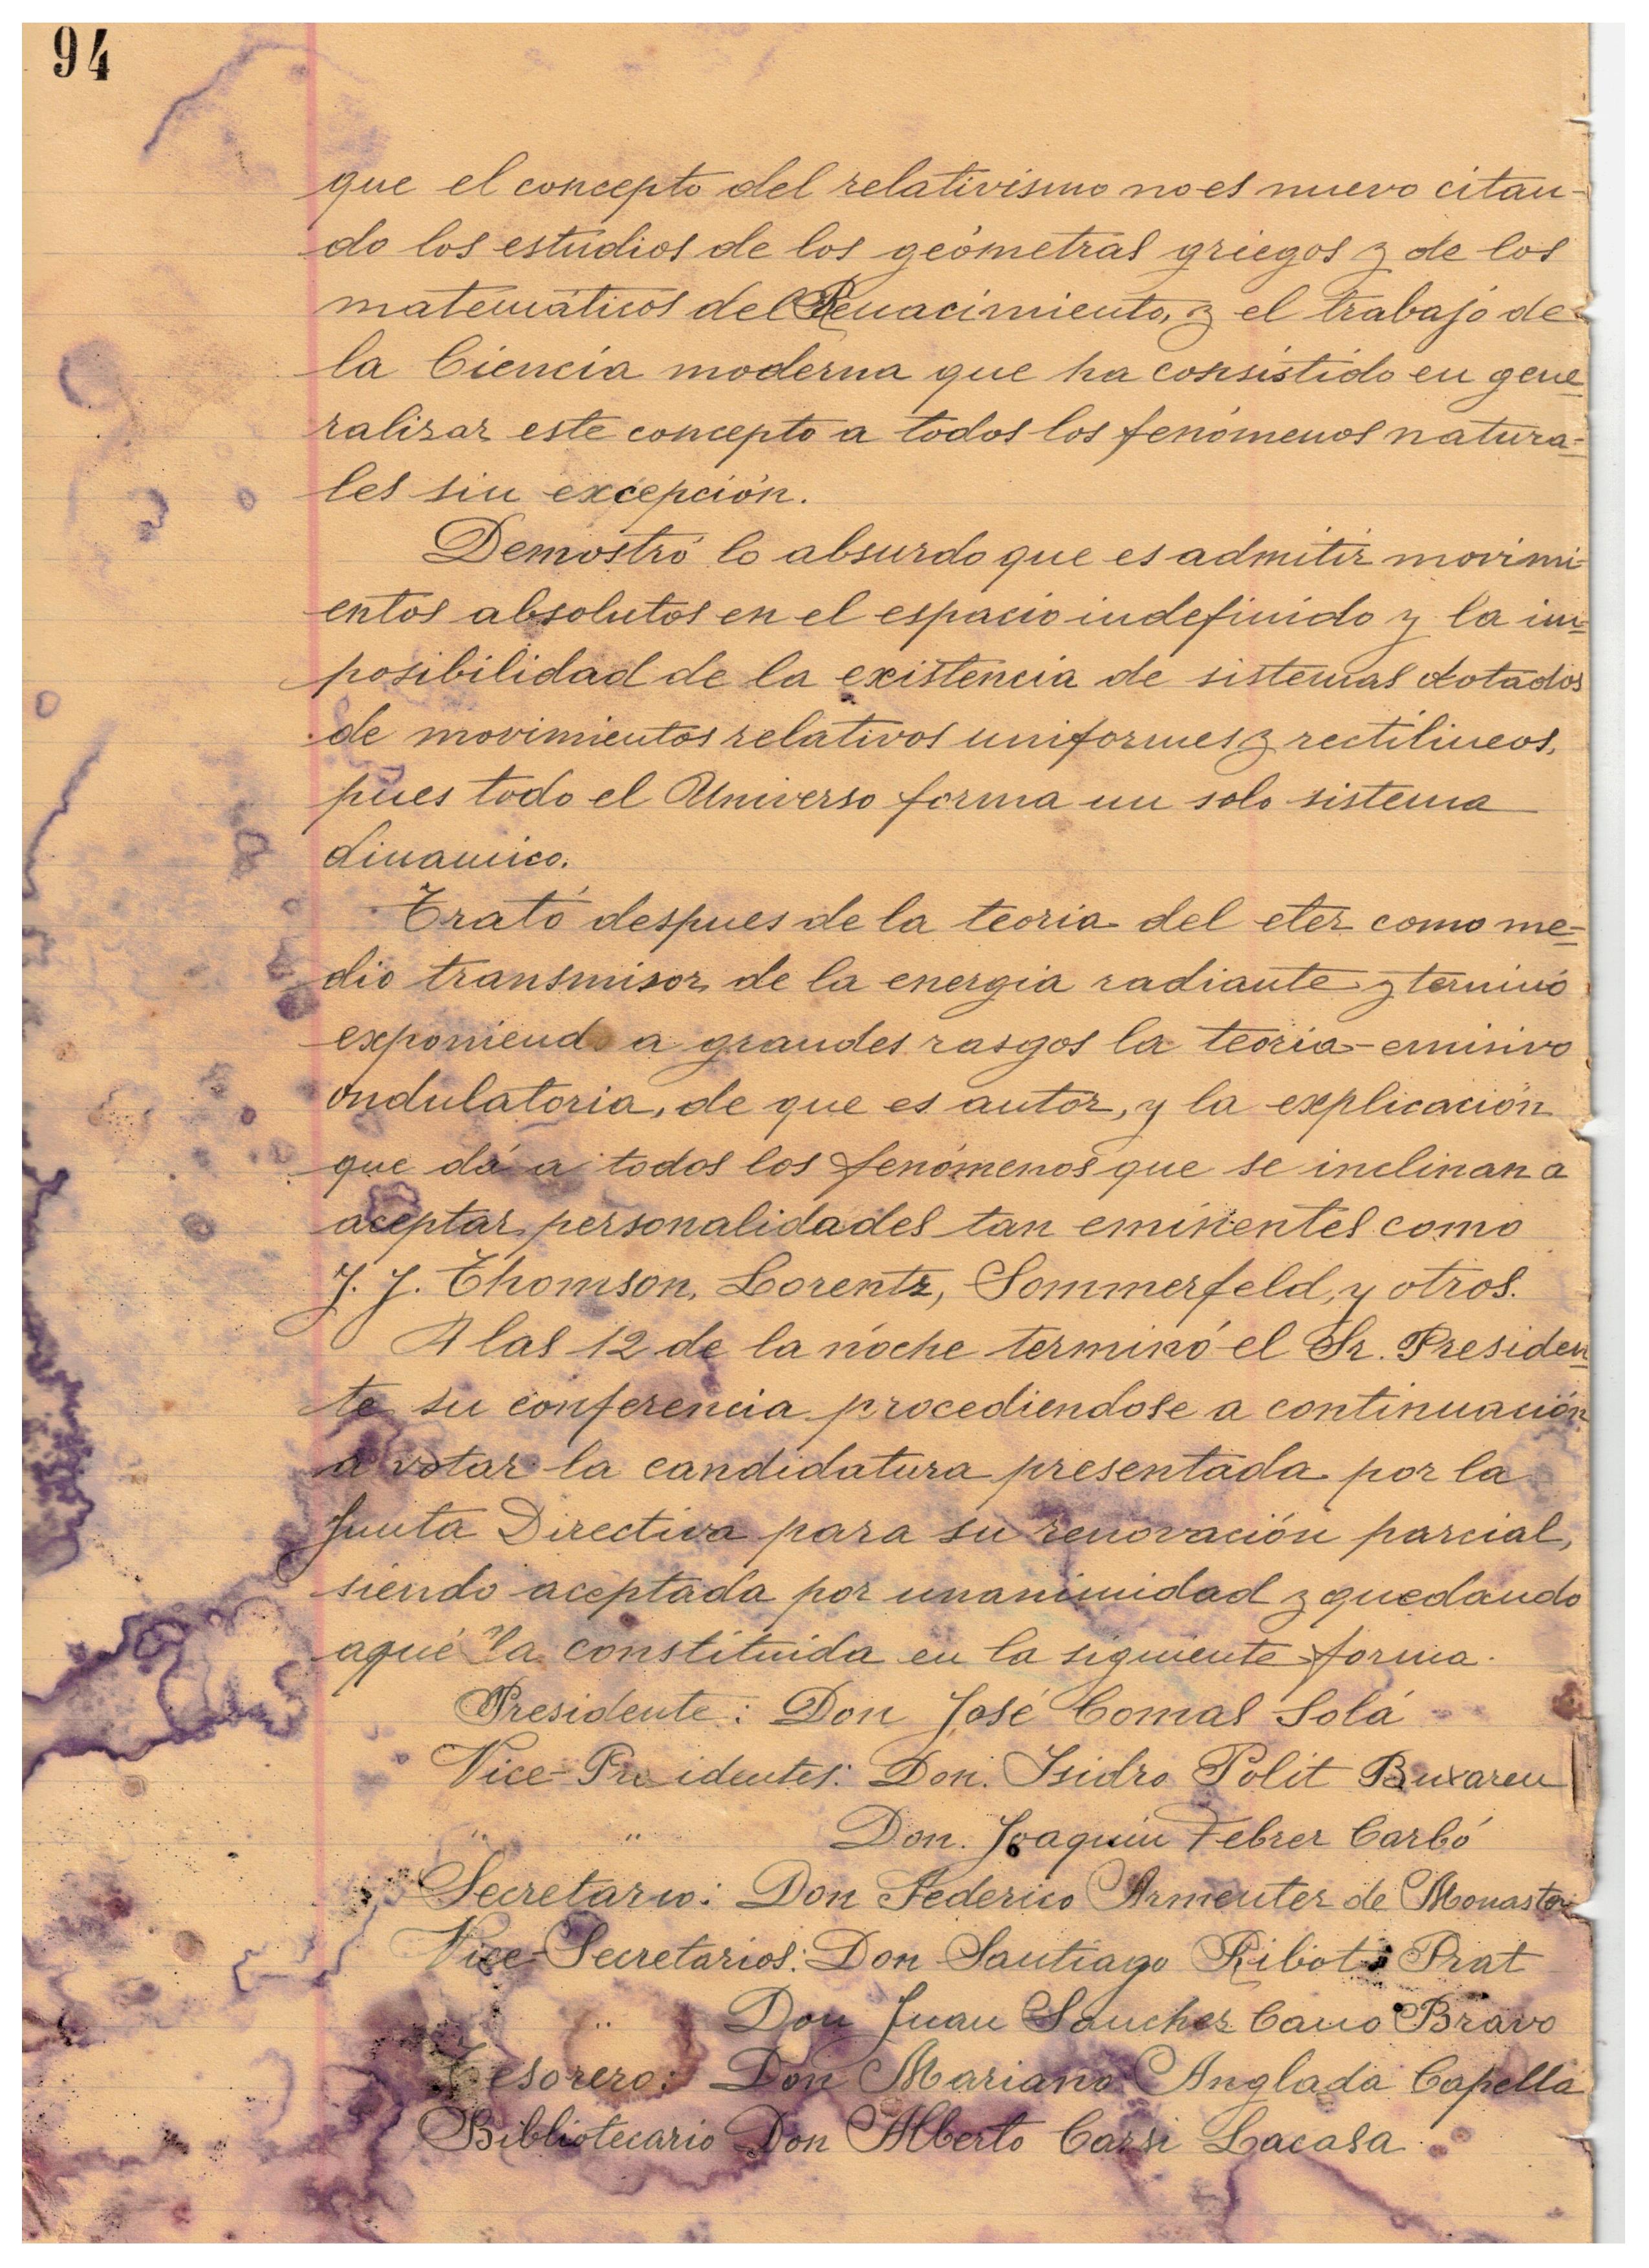 94
que el concepto del relativismo no es nuevo citan-
do los estudios de los geómetras griegos y de los
matemáticos del Renacimiento, y el trabajo de
la Ciencia moderna que ha consistido en gene
ralizar este concepto a todos los fenómenos natura=
les sin excepción.
Demostró lo absurdo que es admitir movimi-
entos absolutos en el espacio indefinido y la im=
posibilidad de la existencia de sistemas dotados
de movimientos relativos uniformes y rectilineos,
pues todo el Universo forma un solo sistema
dinamico.
Trató despues de la teoria del eter como me=
dio transmisor de la energia radiante y terminó
exponiendo a grandes rasgos la teoria-emisivo
ondulatoria, de que es autor, y la explicación
que dá a todos los fenómenos que se inclinan a
aceptar personalidades tan eminentes como
J. J. Thomson, Lorentz, Sommerfeld, y otros.
A las 12 de la noche terminó el Sr. Presiden
te su conferencia procediendose a continuación
a votar la candidatura presentada por la
Junta Directiva para su renovación parcial,
siendo aceptada por unanimidad y quedando
aque lla constituida en la siguiente forma.
Presidente: Don José Comas Solá
Vice-Presidentes: Don. Isidro Polit Buxareu
" " Don. Joaquin Febrer Carbó
Secretario: Don Federico Armenter de Monaster
Vice-Secretarios: Don Santiago Ribot Prat
" Don Juan Sanchez Cano Bravo
Tesorero: Don Mariano Anglada Capella
Bibliotecario Don Alberto Carsi Lacasa